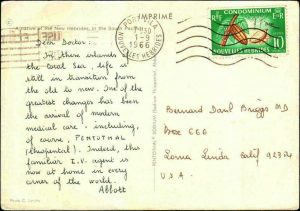 IMPRIMÉ
A native of the New Hebrides, in the South
Dear Doctor:
In these islands
the local Sea, life is
still in transition from
the old to new. One of the
greatest changes has been
the arrival of modern
medical care - including,
of course, PENTOTHAL
(thiopental). Indeed, this
familiar I.V. agent is
now at home in every
corner of the world.
Abbott
PORT-VILA
1-9
1966
NOUVELLES HEBRIDES
RF
CONDOMINIUM
EIIR
NOUVELLES HEBRIDES
10
Bernard Daul Briggs MD
Box 666
Loma Linda Calif 92324
U.S.A.